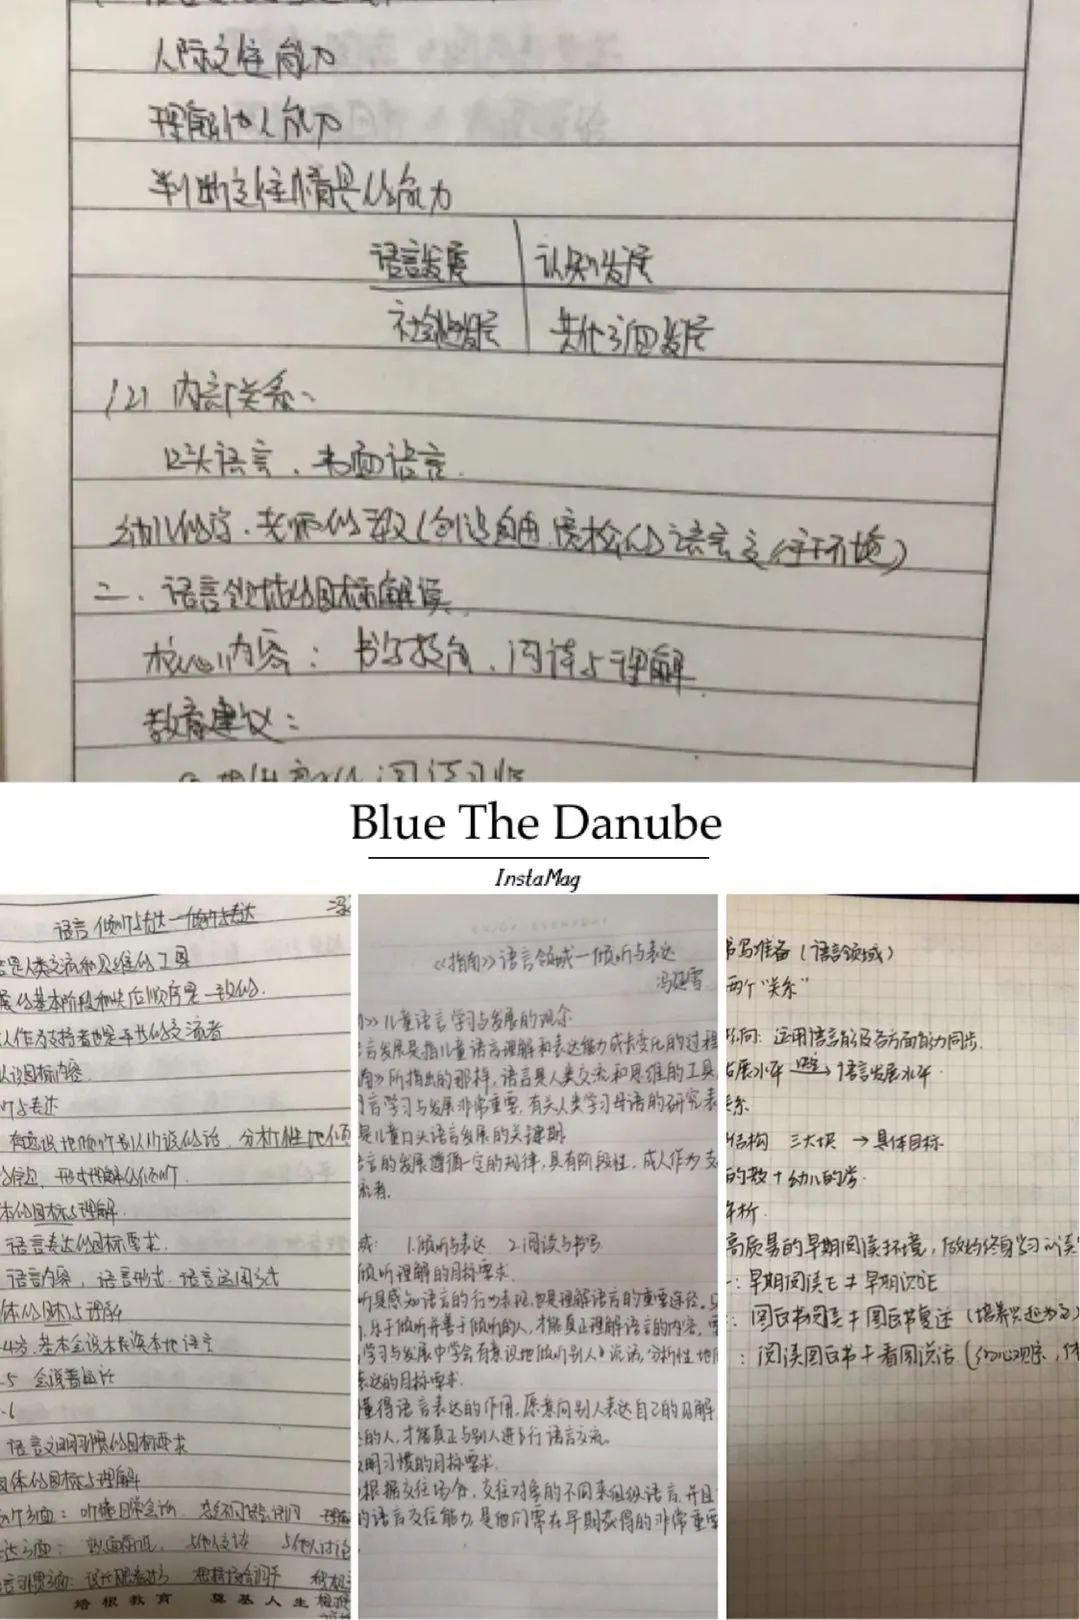 人际交往能力
理解他人能力
判断交往情景的能力
语言发展 认知发展
社会性发展 其他方面发展
(2) 内部关系:
口头语言、书面语言.
幼儿的学、老师的教(创设自由、宽松的语言交往环境)
二、语言领域的目标解读
核心内容: 书写技能、阅读与理解
教育建议:
Blue The Danube
InstaMag
语言 倾听与表达—倾听与表达
是人类交流和思维的工具
展的基本阶段和先后顺序是一致的.
人作为支持者也是平等的交流者
认识目标内容
听与表达
有意识地倾听别人所说的话,分析性地倾
形成理解的倾听.
体的目标与理解.
语言表达的目标要求.
语言内容,语言形式.语言运用方式
体的目标与理解
4岁.基本会说本民族本地语言
5 会说普通话
6
语言文明习惯的目标要求
具体的目标与理解
个方面: 听懂日常会话.
达方面: 与他人交谈 与他人讨论
培根教育 奠基人生
《指南》语言领域—倾听与表达
冯延雪
》儿童语言学习与发展的观念
言发展是指儿童语言理解和表达能力成长变化的过程
南》所指出的那样,语言是人类交流和思维的工具
言学习与发展非常重要,有关人类学习母语的研究表
是儿童口头语言发展的关键期
言的发展遵循一定的规律,具有阶段性,成人作为支
流者.
域: 1.倾听与表达 2.阅读与书写
倾听理解的目标要求.
听是感知语言的行为表现,也是理解语言的重要途径。
,乐于倾听并善于倾听的人,才能真正理解语言的内容,
学习与发展中学会有意识地倾听别人说话,分析性地
表达的目标要求.
懂得语言表达的作用,愿意向别人表达自己的见解
的人,才能真正与别人进行语言交流。
文明习惯的目标要求.
根据交往场合,交往对象的不同来组织语言,并且
的语言交往能力,是他们需在早期获得的非常重要
书写准备(语言领域)
两个"关系"
运用语言能及各方面能力同步.
发展水平 → 语言发展水平
关系
结构 三大块 → 具体目标
的教+幼儿的学.
解析.
高质量的早期阅读环境,做好终身学习的读
: 早期阅读 ≠ 早期识字
: 图画书阅读 ≠ 图画书复述 (培养兴趣为主)
: 阅读图画书 ≠ 看图说话 (细心观察,